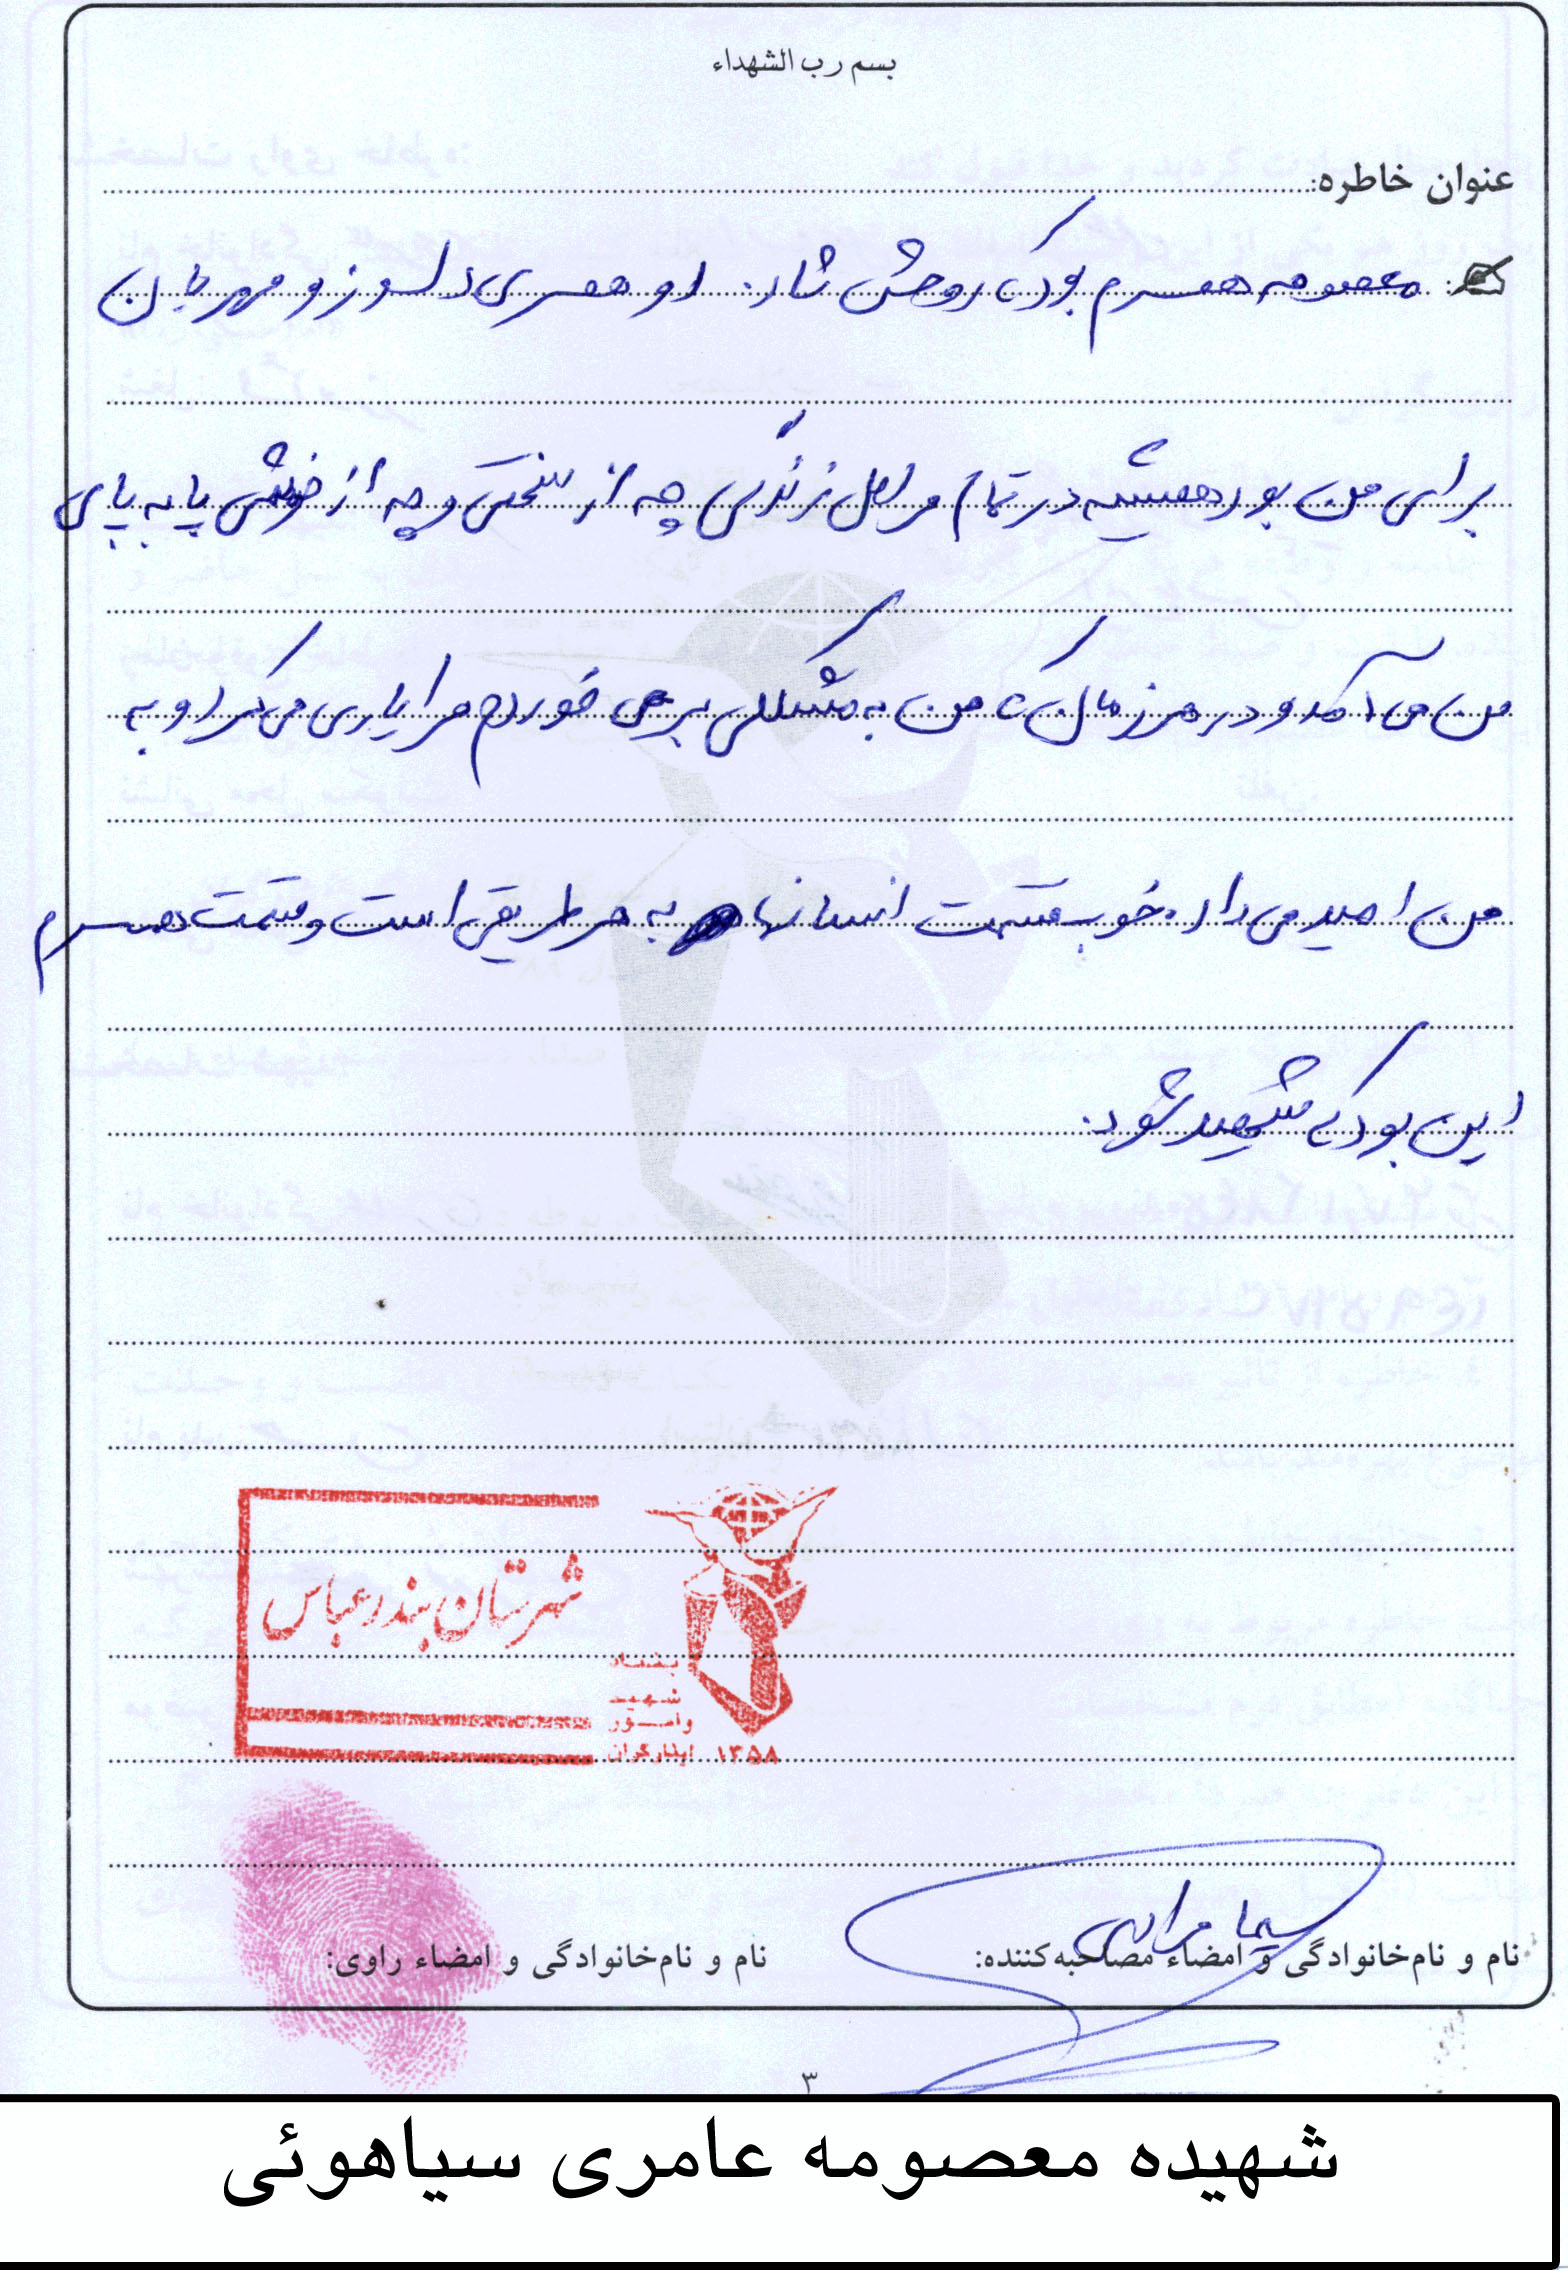 بسم رب الشهداء
عنوان خاطره:
معصومه همسرم بود که روحش شاد. او همسری دلسوز و مهربان
برای من بود همیشه در تمام مراحل زندگی چه از سختی و چه از خوشی پا به پای
من می آمد و در هر زمان که من به مشکلی بر می خوردم مرا یاری می کرد و به
من امید می داد. خوب قسمت انسانها به هر طریقی است و قسمت همسرم
این بود که شهید شود.
شهرستان بندرعباس
بنیاد
شهید
وامور
ایثارگران ۱۳۵۸
نام و نام‌خانوادگی و امضاء مصاحبه‌کننده:
سیما
نام و نام‌خانوادگی و امضاء راوی:
۳
شهیده معصومه عامری سیاهوئی